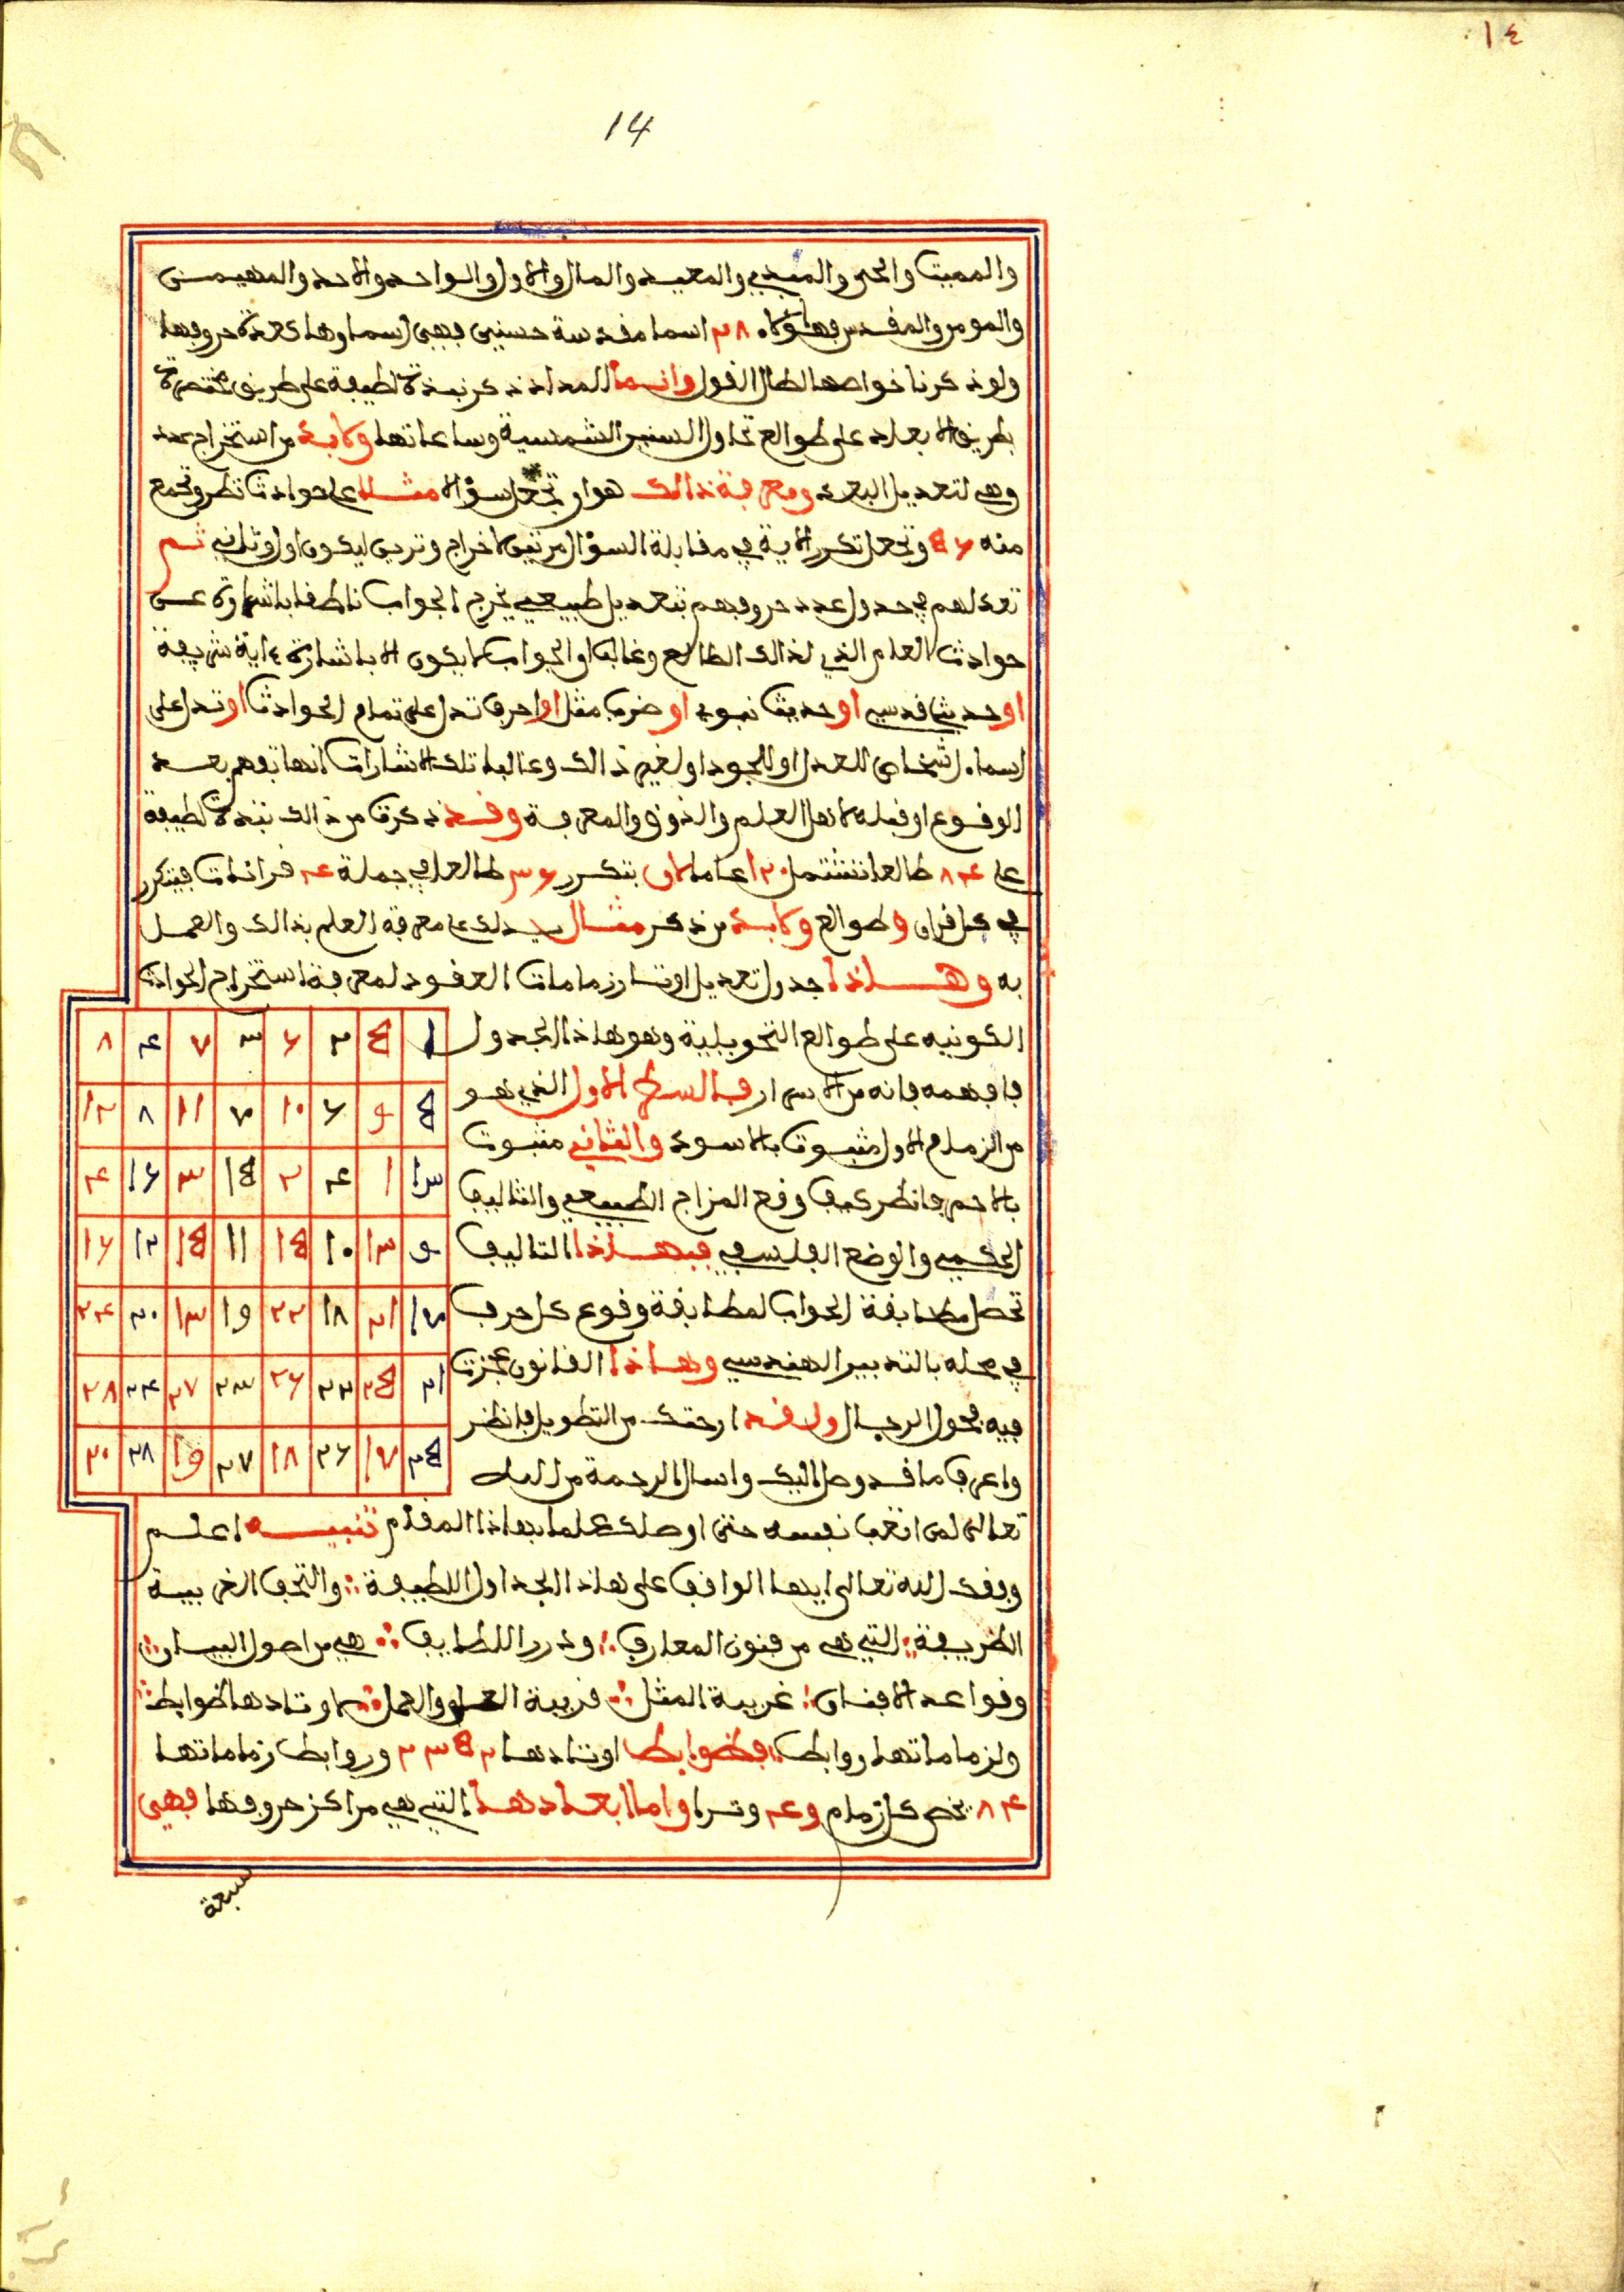 ١٤
14
والمميت والحي والمبدي والمعيد والمال والاول والواحد والاحد والمهيمن
والمومن والمقدس فهاولاء ٢٨ اسما مقدسة حسنيى فهيى اسماوها كعدة حروفها
ولو ذكرنا خواصها لطال القول وانما المراد ذكر نبذة لطيفة على طريق مختصرة
بطريق الابعاد على طوالع تحاول السنين الشمسية وساعاتها ولابد من استخراج عدد
وهي لتعديل البعد ومعرفة ذالك هو ان تجعل سؤالا مثلا على حوادث تنظر وتجمع
منه ٦٥ وتجعل تكرر الاية في مقابلة السؤال مرتين لاخراج وترين ليكون اول وثاني ثم
تعدلهم في جدول عدد حروفهم بتعديل طبيعي يخرج الجواب ناطقا باشارة عن
حوادث العام الذي لذالك الطالع وغالب الجواب لا يكون الا باشارة ءاية شريفة
او حديثا قدسي او حديث نبوي او ضرب مثل او احرف تدل على تمام الحوادث او تدل على
اسماء اشخاص للعدل او للجود او لغير ذالك وغالبا تلك الاشارات انها تفهم بعد
الوقوع او قبله لاهل العلم والذوق والمعرفة وقد ذكرت من ذالك نبذة لطيفة
على ٨٤ طالعا تشتمل ١٢٠ عاما لان يتكرر ٣٦ طالعا في جملة ٤ قرانات فيتكرر
في كل قران ٩ طوالع ولابد من ذكر مثال يدلك على معرفة العلم بذالك والعمل
به وهاذا جدول تعديل اوتار زمامات العقود لمعرفة استخراج الحوادث
الكونيه على طوالع التحويلية وهو هاذا الجدول
فافهمه فانه من الاسرار فالسطر الاول الذي هو
من الزمام الاول مثبوت بالاسود والثاني مثبوت
بالاحمر فانظر كيف وقع المزاج الطبيعي والتاليف
الحكمي والوضع الفلسفي فبهاذا التاليف
تحصل مطابقة الجواب لمطابقة وقوع كل حرف
في محله بالتدبير الهندسي وهاذا القانون عجزت
فيه فحول الرجال ولقد ارحتك من التطويل فانظر
واعرف ما قد وصل اليك واسال الرحمة من الله
تعالى لمن اتعب نفسه حتى اوصلك علما بهاذا المقام تنبيه اعلم
وفقك الله تعالى ايها الواقف على هاذا الجداول اللطيفة والتحف الغريبة
الظريفة التي هي من فنون المعارف ودرر اللطايف هي من اصول البيان
وقواعد الافنان غريبة المثل قريبة العمل لاوتادها ضوابط
ولزماماتها روابط فضوابط اوتادها ٢٣٥٢ وروابط زماماتها
٨٤ يخص كل زمام و٤ وترا واما ابعادها التي هي مراكز حروفها فهيى
١ ٥ ٢ ٦ ٣ ٧ ٤ ٨
٥ ٩ ٦ ١٠ ٧ ١١ ٨ ١٢
١٣ ١ ٤ ٢ ١٥ ٣ ١٦ ٤
٩ ١٣ ١٠ ١٥ ١١ ١٥ ١٢ ١٦
١٧ ٢١ ١٨ ٢٢ ١٩ ١٣ ٢٠ ٢٤
٢١ ٢٥ ٢٢ ٢٦ ٢٣ ٢٧ ٢٤ ٢٨
٢٥ ١٧ ٢٦ ١٨ ٢٧ ١٩ ٢٨ ٢٠
سبعة